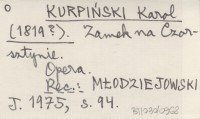 KURPIŃSKI Karol
(1819?). Zamek na Czor-
sztynie.
Opera.
Rec.: MŁODZIEJOWSKI
J. 1975, s. 94.